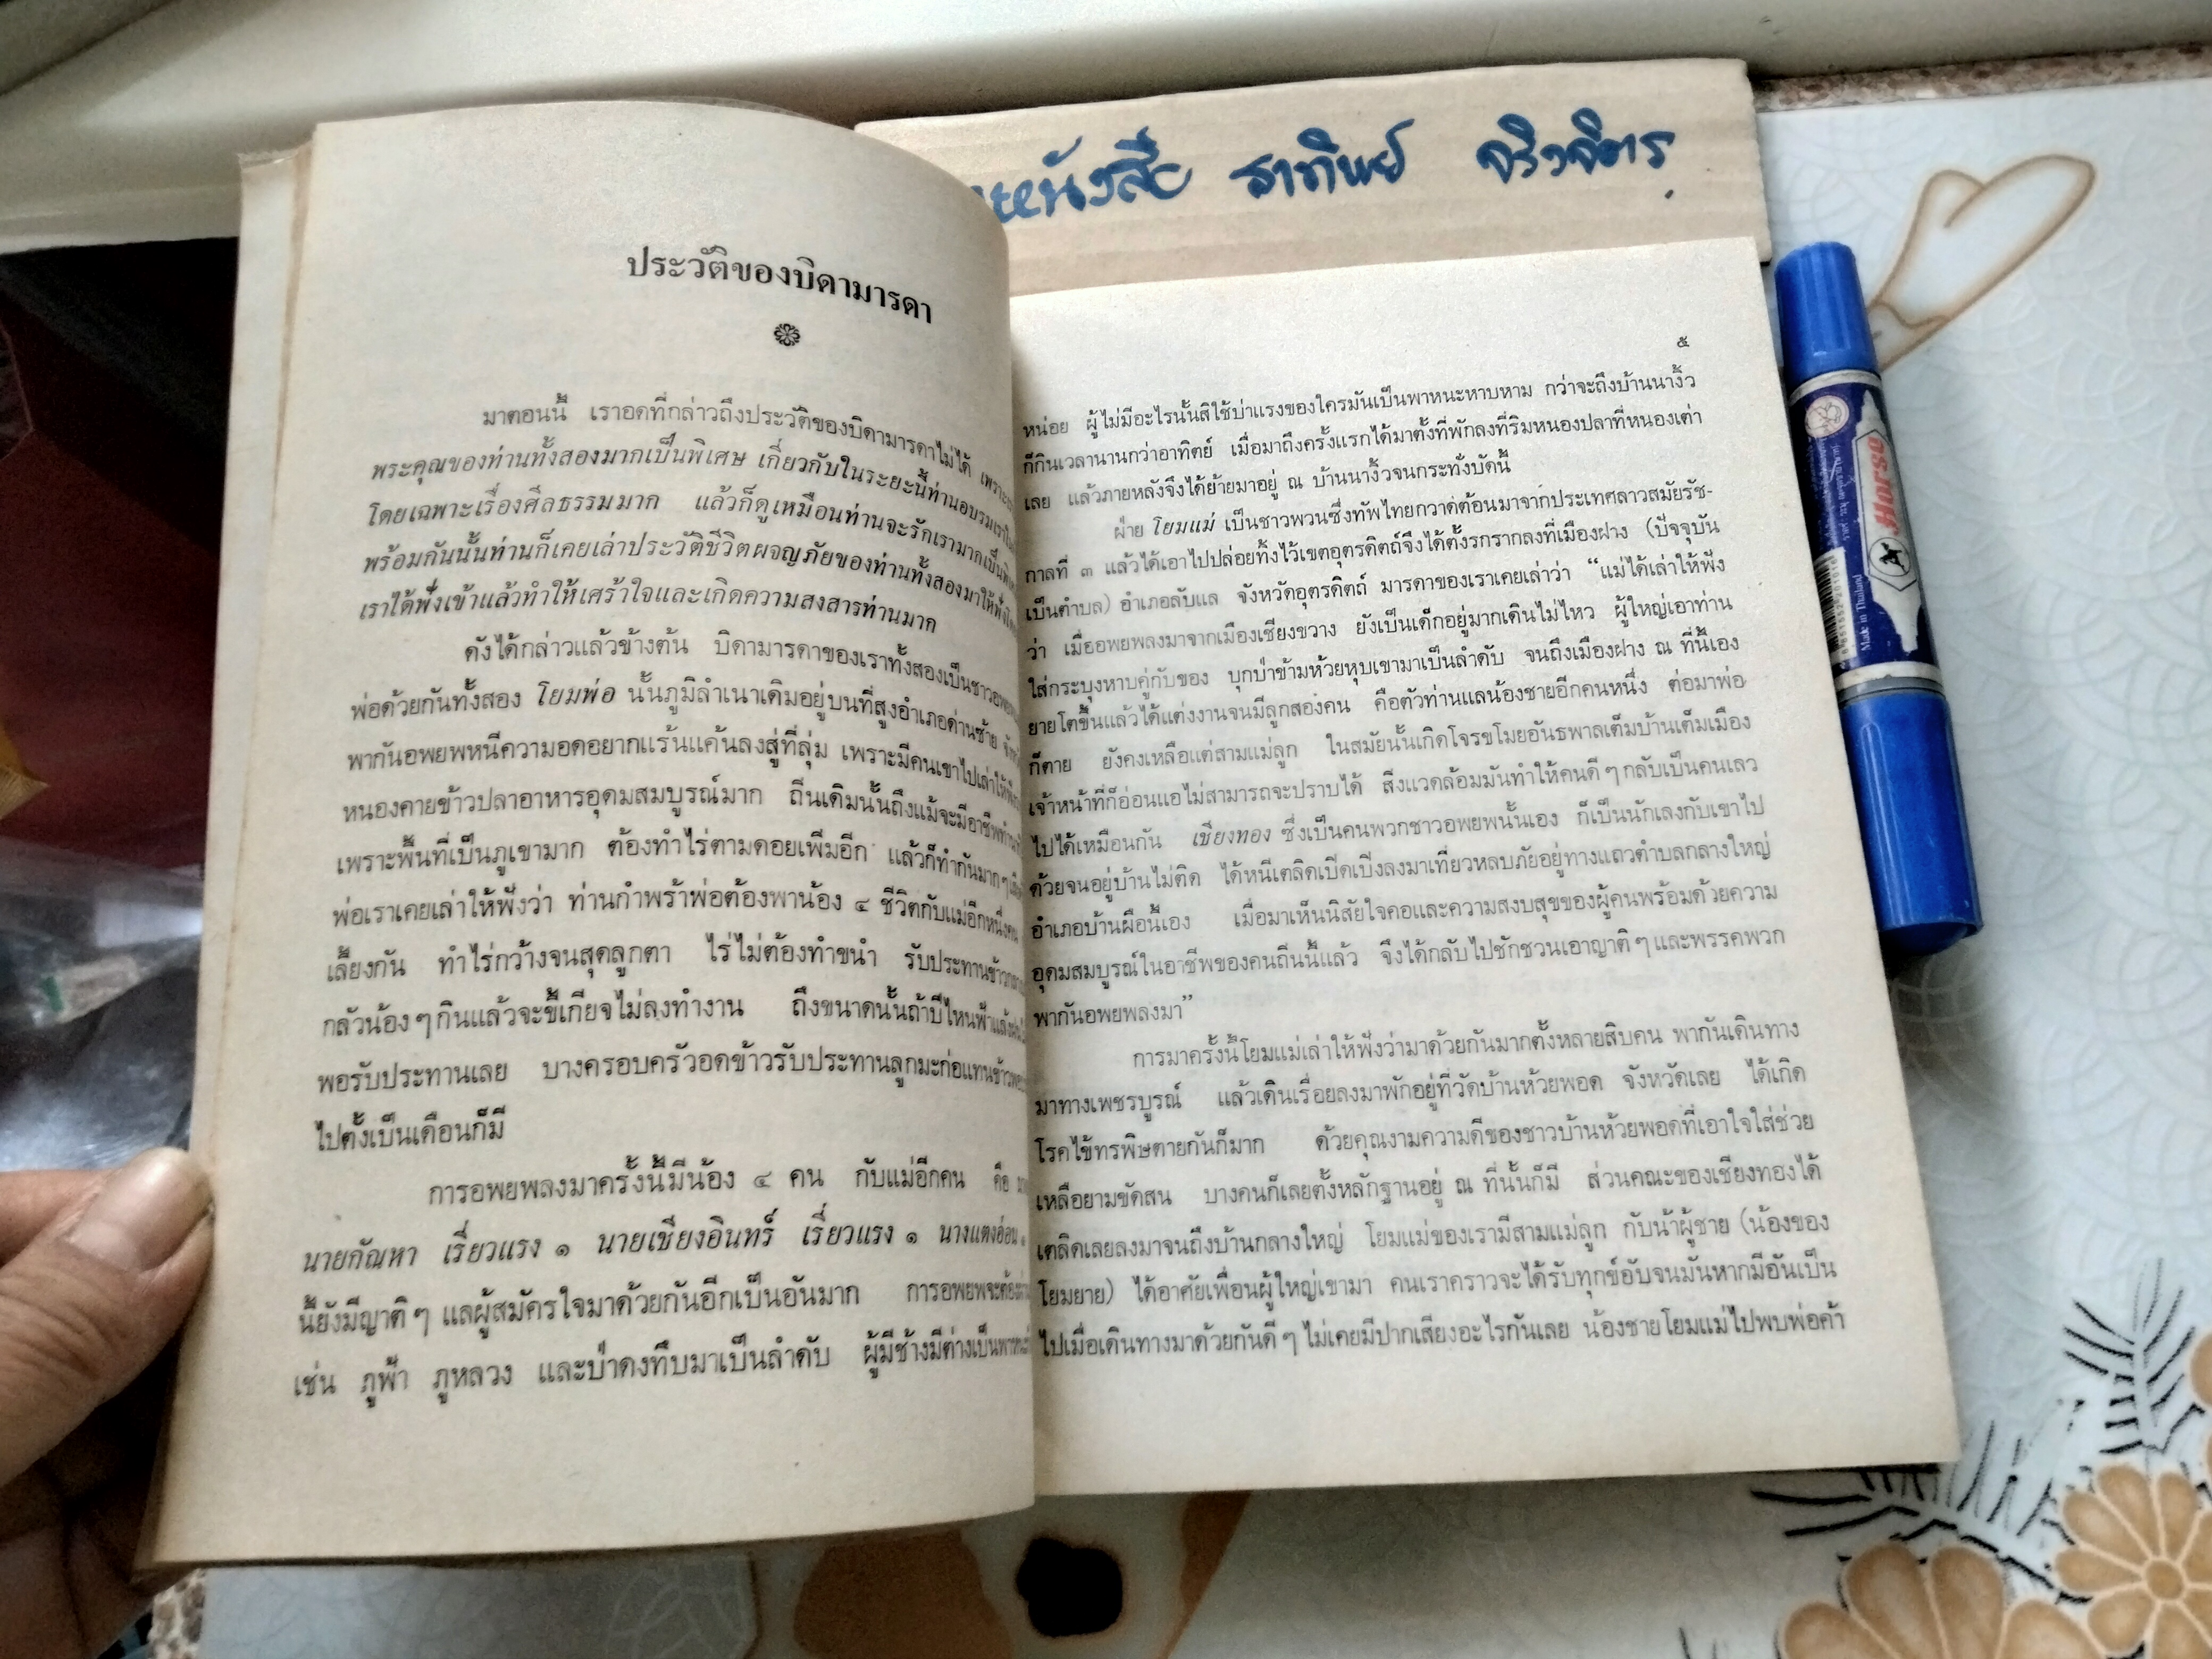 หนังสือ ธาทิพย์ จริงจิตร
ประวัติของบิดามารดา
มาตอนนี้ เราอดที่กล่าวถึงประวัติของบิดามารดาไม่ได้
พระคุณของท่านทั้งสองมากเป็นพิเศษ เกี่ยวกับในระยะนี้ท่านอบรมเรา
โดยเฉพาะเรื่องศีลธรรมมาก แล้วก็ดูเหมือนท่านจะรักเรามากเป็น
พร้อมกันนั้นท่านก็เคยเล่าประวัติชีวิตผจญภัยของท่านทั้งสองมาให้ฟัง
เราได้ฟังเข้าแล้วทำให้เศร้าใจและเกิดความสงสารท่านมาก
ดังได้กล่าวแล้วข้างต้น บิดามารดาของเราทั้งสองเป็นชาวอพยพ
พ่อด้วยกันทั้งสอง โยมพ่อ นั้นภูมิลำเนาเดิมอยู่บนที่สูงอำเภอด่านซ้าย
พากันอพยพหนีความอดอยากแร้นแค้นลงสู่ที่ลุ่ม เพราะมีคนเขาไปเล่าให้ฟัง
หนองคายข้าวปลาอาหารอุดมสมบูรณ์มาก ถิ่นเดิมนั้นถึงแม้จะมีอาชีพทำนา
เพราะพื้นที่เป็นภูเขามาก ต้องทำไร่ตามดอยเพิ่มอีก แล้วก็ทำกันมากๆ
พ่อเราเคยเล่าให้ฟังว่า ท่านกำพร้าพ่อต้องพาน้อง ๔ ชีวิตกับแม่อีกหนึ่งคน
เลี้ยงกัน ทำไร่กว้างจนสุดลูกตา ไร่ไม่ต้องทำขนำ รับประทานข้าว
กลัวน้องๆ กินแล้วจะขี้เกียจไม่ลงทำงาน ถึงขนาดนั้นถ้าปีไหนฟ้าแล้ง
พอรับประทานเลย บางครอบครัวอดข้าวรับประทานลูกมะก่อแทนข้าว
ไปตั้งเป็นเดือนก็มี
การอพยพลงมาครั้งนี้มีน้อง ๔ คน กับแม่อีกคน คือ
นายกัณหา เรี่ยวแรง ๑ นายเชียงอินทร์ เรี่ยวแรง ๑ นางแตงอ่อน
นี้ยังมีญาติๆ แลผู้สมัครใจมาด้วยกันอีกเป็นอันมาก การอพยพจะต้อง
เช่น ภูฟ้า ภูหลวง และป่าดงทึบมาเป็นลำดับ ผู้มีช้างมีต่างเป็น
๕
หน่อย ผู้ไม่มีอะไรนั้นสิใช้บ่าแรงของใครมันเป็นพาหนะหาบหาม กว่าจะถึงบ้านนางิ้ว
ก็กินเวลานานกว่าอาทิตย์ เมื่อมาถึงครั้งแรกได้มาตั้งที่พักลงที่ริมหนองปลาที่หนองเต่า
เลย แล้วภายหลังจึงได้ย้ายมาอยู่ ณ บ้านนางิ้วจนกระทั่งบัดนี้
ฝ่าย โยมแม่ เป็นชาวพวนซึ่งทัพไทยกวาดต้อนมาจากประเทศลาวสมัยรัช-
กาลที่ ๓ แล้วได้เอาไปปล่อยทิ้งไว้เขตอุตรดิตถ์จึงได้ตั้งรกรากลงที่เมืองฝาง (ปัจจุบัน
เป็นตำบล) อำเภอลับแล จังหวัดอุตรดิตถ์ มารดาของเราเคยเล่าว่า “แม่ได้เล่าให้ฟัง
ว่า เมื่ออพยพลงมาจากเมืองเชียงขวาง ยังเป็นเด็กอยู่มากเดินไม่ไหว ผู้ใหญ่เอาท่าน
ใส่กระบุงหาบคู่กับของ บุกป่าข้ามห้วยหุบเขามาเป็นลำดับ จนถึงเมืองฝาง ณ ที่นี้เอง
ยายโตขึ้นแล้วได้แต่งงานจนมีลูกสองคน คือตัวท่านแลน้องชายอีกคนหนึ่ง ต่อมาพ่อ
ก็ตาย ยังคงเหลือแต่สามแม่ลูก ในสมัยนั้นเกิดโจรขโมยอันธพาลเต็มบ้านเต็มเมือง
เจ้าหน้าที่ก็อ่อนแอไม่สามารถจะปราบได้ สิ่งแวดล้อมมันทำให้คนดีๆ กลับเป็นคนเลว
ไปได้เหมือนกัน เชียงทอง ซึ่งเป็นคนพวกชาวอพยพนั้นเอง ก็เป็นนักเลงกับเขาไป
ด้วยจนอยู่บ้านไม่ติด ได้หนีเตลิดเปิดเปิงลงมาเที่ยวหลบภัยอยู่ทางแถวตำบลกลางใหญ่
อำเภอบ้านผือนี้เอง เมื่อมาเห็นนิสัยใจคอและความสงบสุขของผู้คนพร้อมด้วยความ
อุดมสมบูรณ์ในอาชีพของคนถิ่นนี้แล้ว จึงได้กลับไปชักชวนเอาญาติๆ และพรรคพวก
พากันอพยพลงมา”
การมาครั้งนี้โยมแม่เล่าให้ฟังว่ามาด้วยกันมากตั้งหลายสิบคน พากันเดินทาง
มาทางเพชรบูรณ์ แล้วเดินเรื่อยลงมาพักอยู่ที่วัดบ้านห้วยพอด จังหวัดเลย ได้เกิด
โรคไข้ทรพิษตายกันก็มาก ด้วยคุณงามความดีของชาวบ้านห้วยพอดที่เอาใจใส่ช่วย
เหลือยามขัดสน บางคนก็เลยตั้งหลักฐานอยู่ ณ ที่นั้นก็มี ส่วนคณะของเชียงทองได้
เตลิดเลยลงมาจนถึงบ้านกลางใหญ่ โยมแม่ของเรามีสามแม่ลูก กับน้าผู้ชาย (น้องของ
โยมยาย) ได้อาศัยเพื่อนผู้ใหญ่เขามา คนเราคราวจะได้รับทุกข์อับจนมันหากมีอันเป็น
ไปเมื่อเดินทางมาด้วยกันดีๆ ไม่เคยมีปากเสียงอะไรกันเลย น้องชายโยมแม่ไปพบพ่อค้า
Horse
Made in Thailand